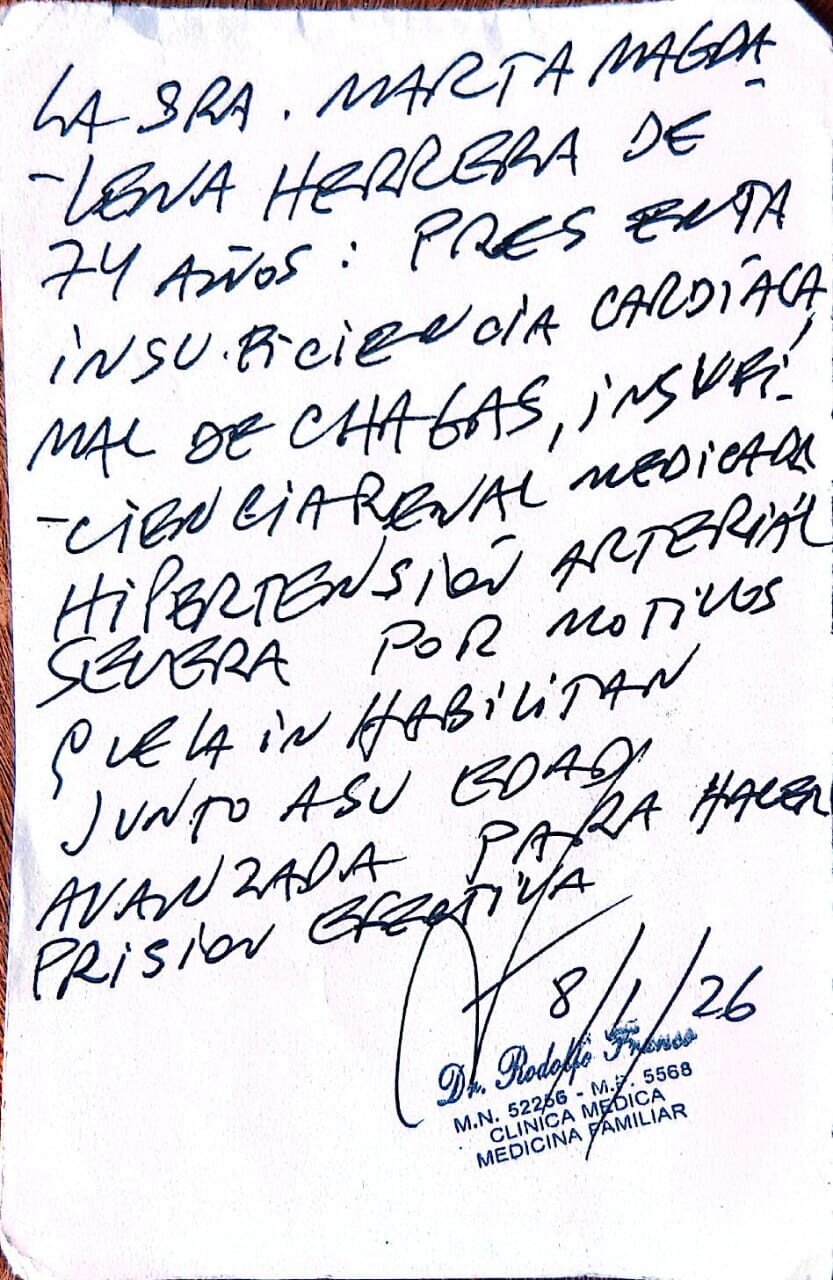 LA SRA. MARTA MAGDA-
-LENA HERRERA DE
74 AÑOS: PRESENTA
INSUFICIENCIA CARDÍACA,
MAL DE CHAGAS, INSUFI-
-CIENCIA RENAL MEDICADA
HIPERTENSIÓN ARTERIAL
SEVERA POR MOTIVOS
QUE LA INHABILITAN
JUNTO A SU EDAD
AVANZADA PARA HACER
PRISION EFECTIVA
8/1/26
Dr. Rodolfo Franco
M.N. 52256 - M.P. 5568
CLINICA MEDICA
MEDICINA FAMILIAR